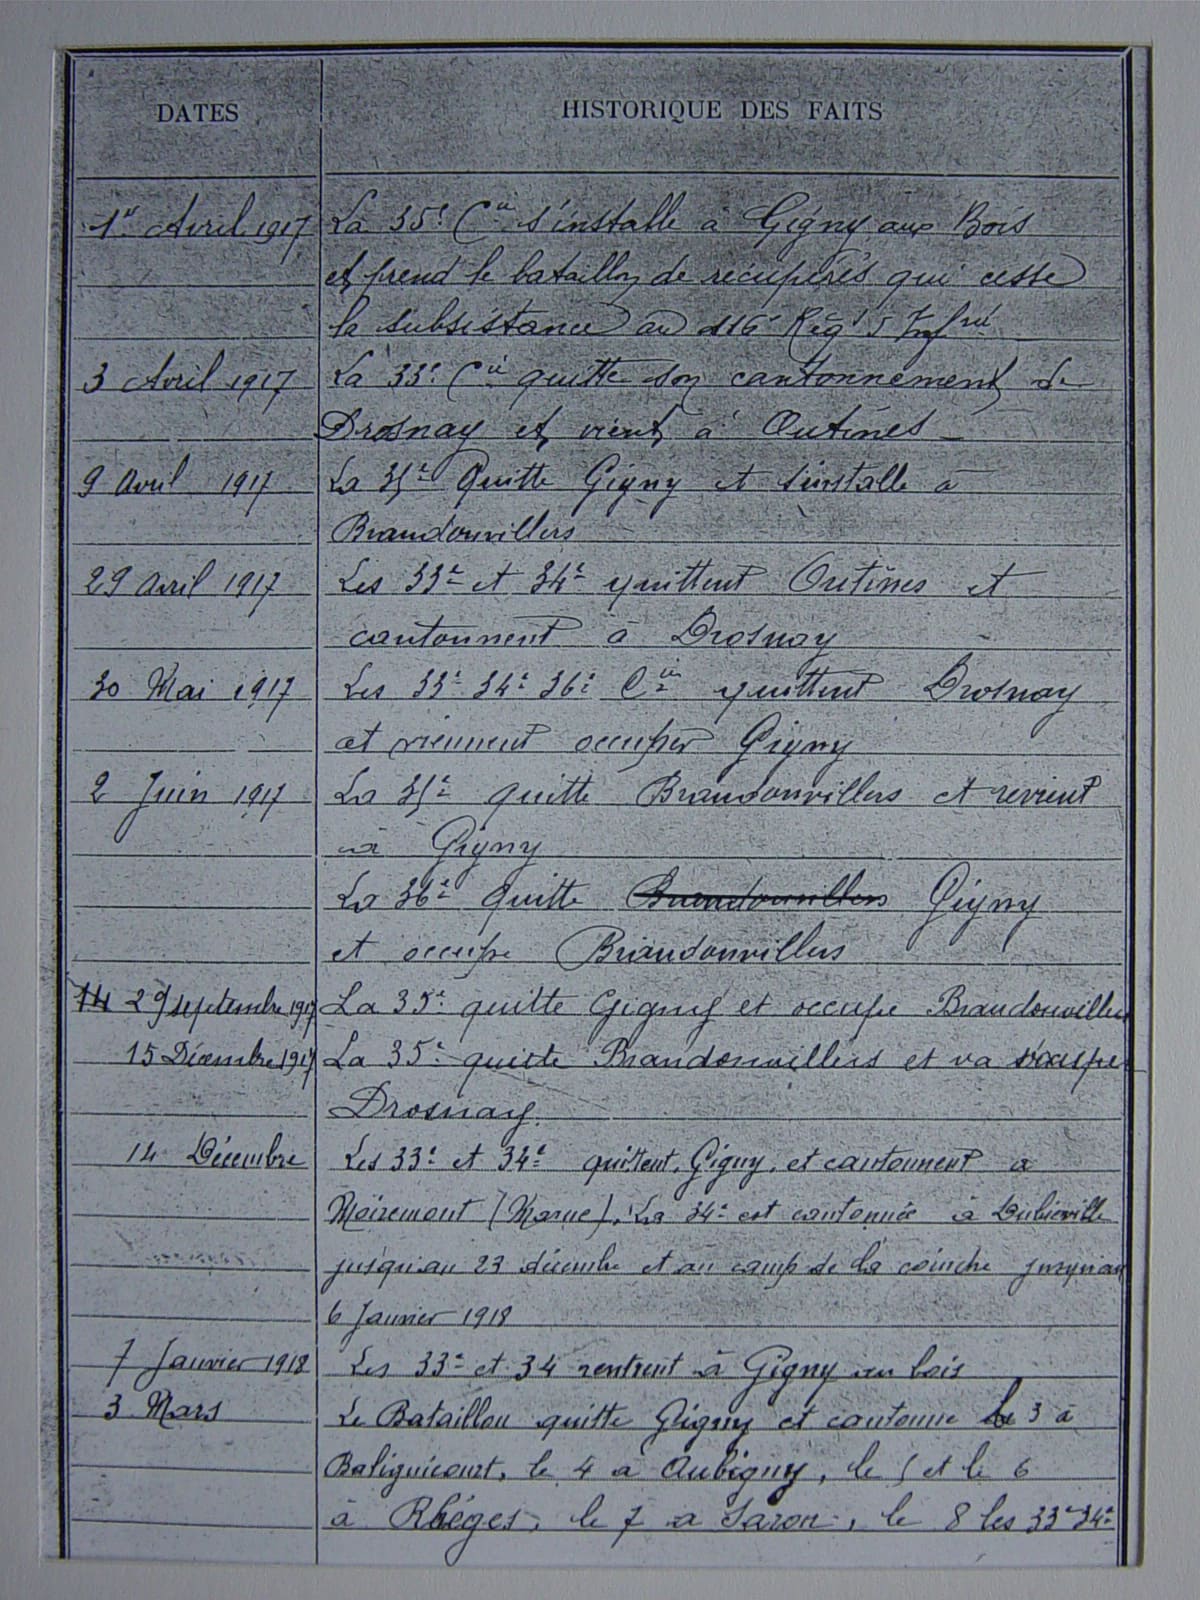 DATES HISTORIQUE DES FAITS
1er Avril 1917 La 35e Cie s'installe à Gigny aux Bois
et prend le bataillon de récupérés qui cesse
la subsistance au 116e Régt d'Infrie
3 Avril 1917 La 33e Cie quitte son cantonnement de
Drosnay et vient à Outines
9 Avril 1917 La 35e Quitte Gigny et s'installe à
Brandonvillers
29 Avril 1917 Les 33e et 34e quittent Outines et
cantonnent à Drosnay
30 Mai 1917 Les 33e 34e 36e Cies quittent Drosnay
et viennent occuper Gigny
2 Juin 1917 La 35e quitte Brandonvillers et revient
à Gigny
La 36e Quitte Brandonvillers Gigny
et occupe Brandonvillers
14 29 septembre 1917 La 35e quitte Gigny et occupe Brandonvillers
15 Décembre 1917 La 35e quitte Brandonvillers et va occuper
Drosnay.
14 Décembre Les 33e et 34e quittent Gigny, et cantonnent à
Moiremont (Marne). La 34e est cantonnée à
jusqu'au 23 décembre et au camp de la jusqu'au
6 Janvier 1918
7 Janvier 1918 Les 33e et 34 rentrent à Gigny au bois
3 Mars Le Bataillon quitte Gigny et cantonne le 3 à
Balignicourt, le 4 à Aubigny, le 5 et le 6
à Rhèges, le 7 à Saron, le 8 les 33e 34e